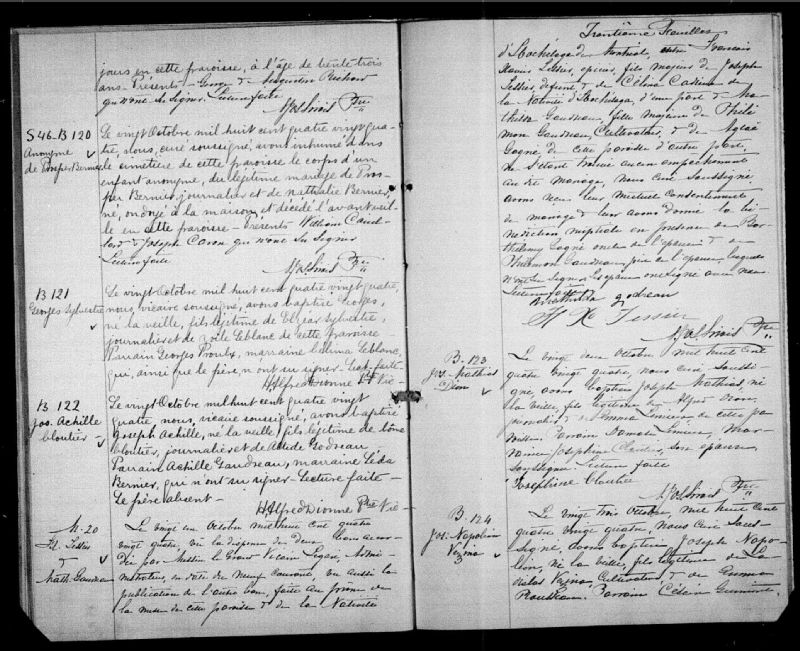 jours en cette paroisse, à l'âge de trente trois
ans. Présents
qu'nont su signer. Lecture faite
Ptre
S 46-B 120
Anonyme
de Prosper Bernier
Le vingt Octobre mil huit cent quatre vingt qua-
tre, nous, curé soussigné, avons inhumé dans
le cimetière de cette paroisse le corps d'un
enfant anonyme, du légitime mariage de Pros-
per Bernier, journalier et de Nathalie Bernier,
né, ondoyé à la maison et décédé l'avant veil-
le en cette paroisse - Présents William
& Joseph Caron qui n'ont su signer
Lecture faite
Ptre
B 121
Georges Sylvestre
Le vingt Octobre mil huit cent quatre vingt quatre,
nous, vicaire soussigné, avons baptisé Georges,
né la veille, fils légitime de Elzéar Sylvestre,
journalier et de Zoïle Leblanc de cette paroisse
Parrain Georges Proulx, marraine Elmina Leblanc,
qui, ainsi que le père, n'ont su signer - Lect. faite -
H. Alfred Dionne Ptre Vic-
B 122
Jos. Achille
Cloutier
Le vingt Octobre mil huit cent quatre vingt
quatre, nous, vicaire soussigné, avons baptisé
Joseph Achille, né la veille, fils légitime de
Cloutier, journalier et de Godreau
Parrain Achille Gaudreau, marraine Léda
Bernier, qui n'ont su signer - Lecture faite -
Le père absent -
H. Alfred Dionne Ptre Vic-
M. 20
Tessier
&
Math. Gaudreau
Le vingt un Octobre mil huit cent quatre
vingt quatre, vu la dispense de deux bans accor-
dée par Messire le Grand Vicaire Légaré, Admi-
nistrateur, en date du neuf courant, vu aussi la
publication de l'autre ban, faite au prône de
la messe de cette paroisse & de la Nativité
Trentième Feuillet
d'Hochelaga de Montréal, entre François
Xavier Tessier, épicier, fils majeur de Joseph
Tessier, défunt & de Célina de
la Nativité d'Hochelaga, d'une part & Ma-
thilda Gaudreau, fille majeure de Phile
mon Gaudreau Cultivateur, & de Aglaé
Gagné de cette paroisse d'autre part,
ne s'étant trouvé aucun empêchement
au dit mariage, nous curé soussigné
avons reçu leur mutuel consentement
de mariage & leur avons donné la bé
nédiction nuptiale en présence de Bar-
thelemy Gagné oncle de l'épouse & de
Philémon Gaudreau, père de l'épouse, lesquels
n'ont su signer. Les époux ont signé avec nous
Lecture faite
Mathilda godreau
F X Tessier
Ptre
B. 123
Jos. Mathias
Dion
Le vingt deux Octobre mil huit cent
quatre vingt quatre, nous curé soussi-
gné avons baptisé Joseph Mathias, né
la veille, fils légitime de Alfred Dion
journalier & de Emma Lemieux de cette pa
roisse. Parrain Damase Lemieux Mar-
raine Josephine Cloutier, son épouse
Soussignée. Lecture faite
Josephine Cloutier
Ptre
B. 124
Jos. Napoléon
Vézina
Le vingt trois Octobre, mil huit cent
quatre vingt quatre, nous Curé Sous-
signé, avons baptisé Joseph Napo-
léon, né la veille, fils légitime de
Vézina Cultivateur & de
Rousseau. Parrain Césaire